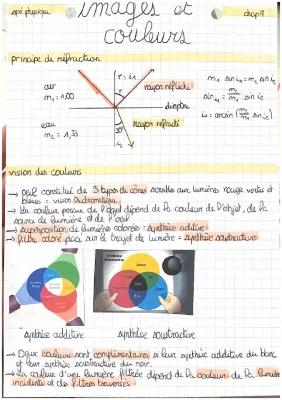 spé physique
images et
chap 1
couleurs
principe de réfraction
air
n₁ = 1,00
r = i₁
rayon réfléchi
n₁ sin i₁ = n₂ sin i₂
dioptre
eau
n₂ = 1,33
rayon réfracté
i₂
vision des couleurs
→ oeil constitué de 3 types de cônes sensibles aux lumières rouge vertes et
bleues = vision trichromatique
→ la couleur perçue de l'objet dépend de la couleur de l'objet, de la
source de lumière et de l'oeil
→ superposition de lumières colorées = synthèse additive
→ filtre coloré placé sur le trajet de lumière = synthèse soustractive
synthèse additive
synthèse soustractive
→ Deux couleurs sont complémentaires si leur synthèse additive du blanc
et leur synthèse soustractive du noir.
→ La couleur d'une lumière filtrée dépend de la couleur de la lumière
incidente et des filtres traversés